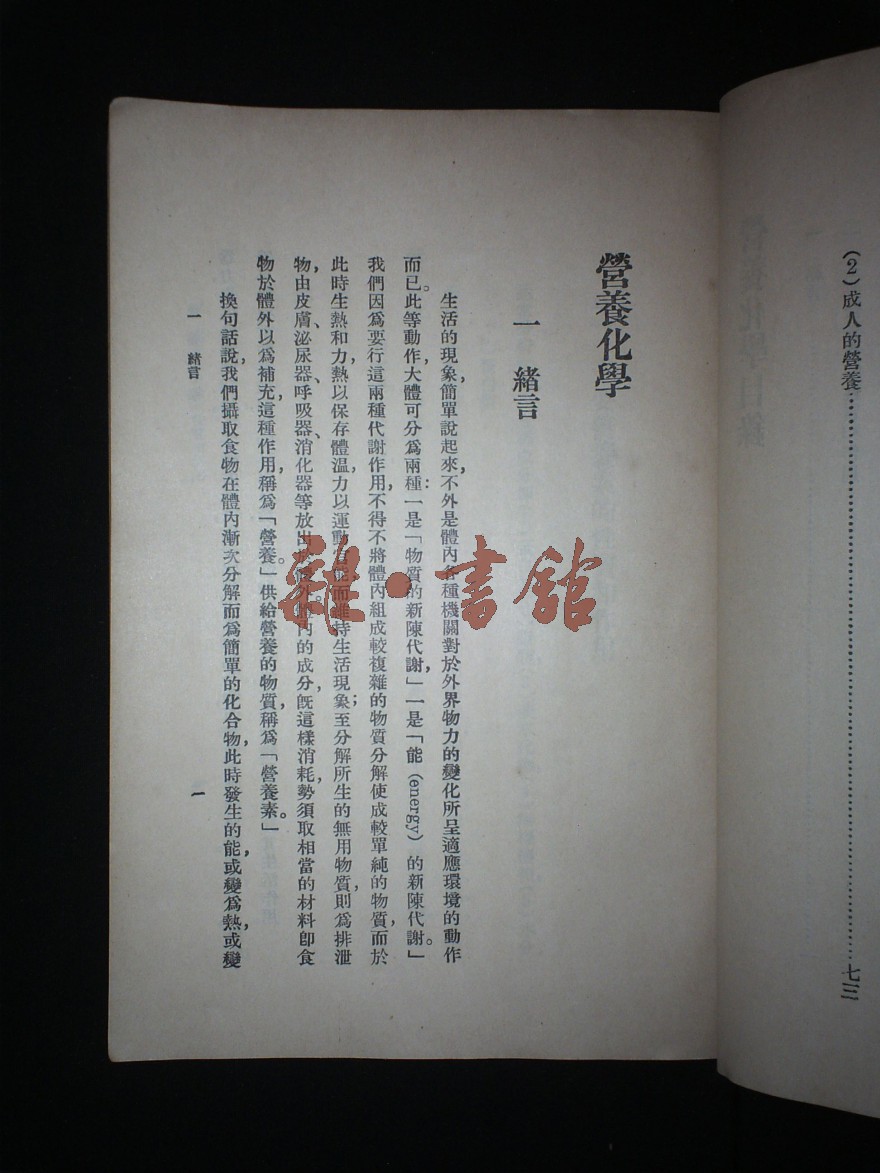 (2)成人的營養……………………………………七三
營養化學
一 緒言
生活的現象,簡單說起來,不外是體內各種機關對於外界物力的變化所呈適應環境的動作
而已。此等動作,大體可分爲兩種:一是「物質的新陳代謝,」一是「能(energy)的新陳代謝。」
我們因爲要行這兩種代謝作用,不得不將體內組成較複雜的物質分解使成較單純的物質,而於
此時生熱和力,熱以保存體溫,力以運動官能而維持生活現象;至分解所生的無用物質,則爲排泄
物,由皮膚、泌尿器、呼吸器、消化器等放出於體外。體內的成分,旣這樣消耗,勢須取相當的材料卽食
物於體外以爲補充,這種作用,稱爲「營養。」供給營養的物質,稱爲「營養素。」
換句話說,我們攝取食物在體內漸次分解而爲簡單的化合物,此時發生的能,或變爲熱,或變
一 緒言
一
雜·書館